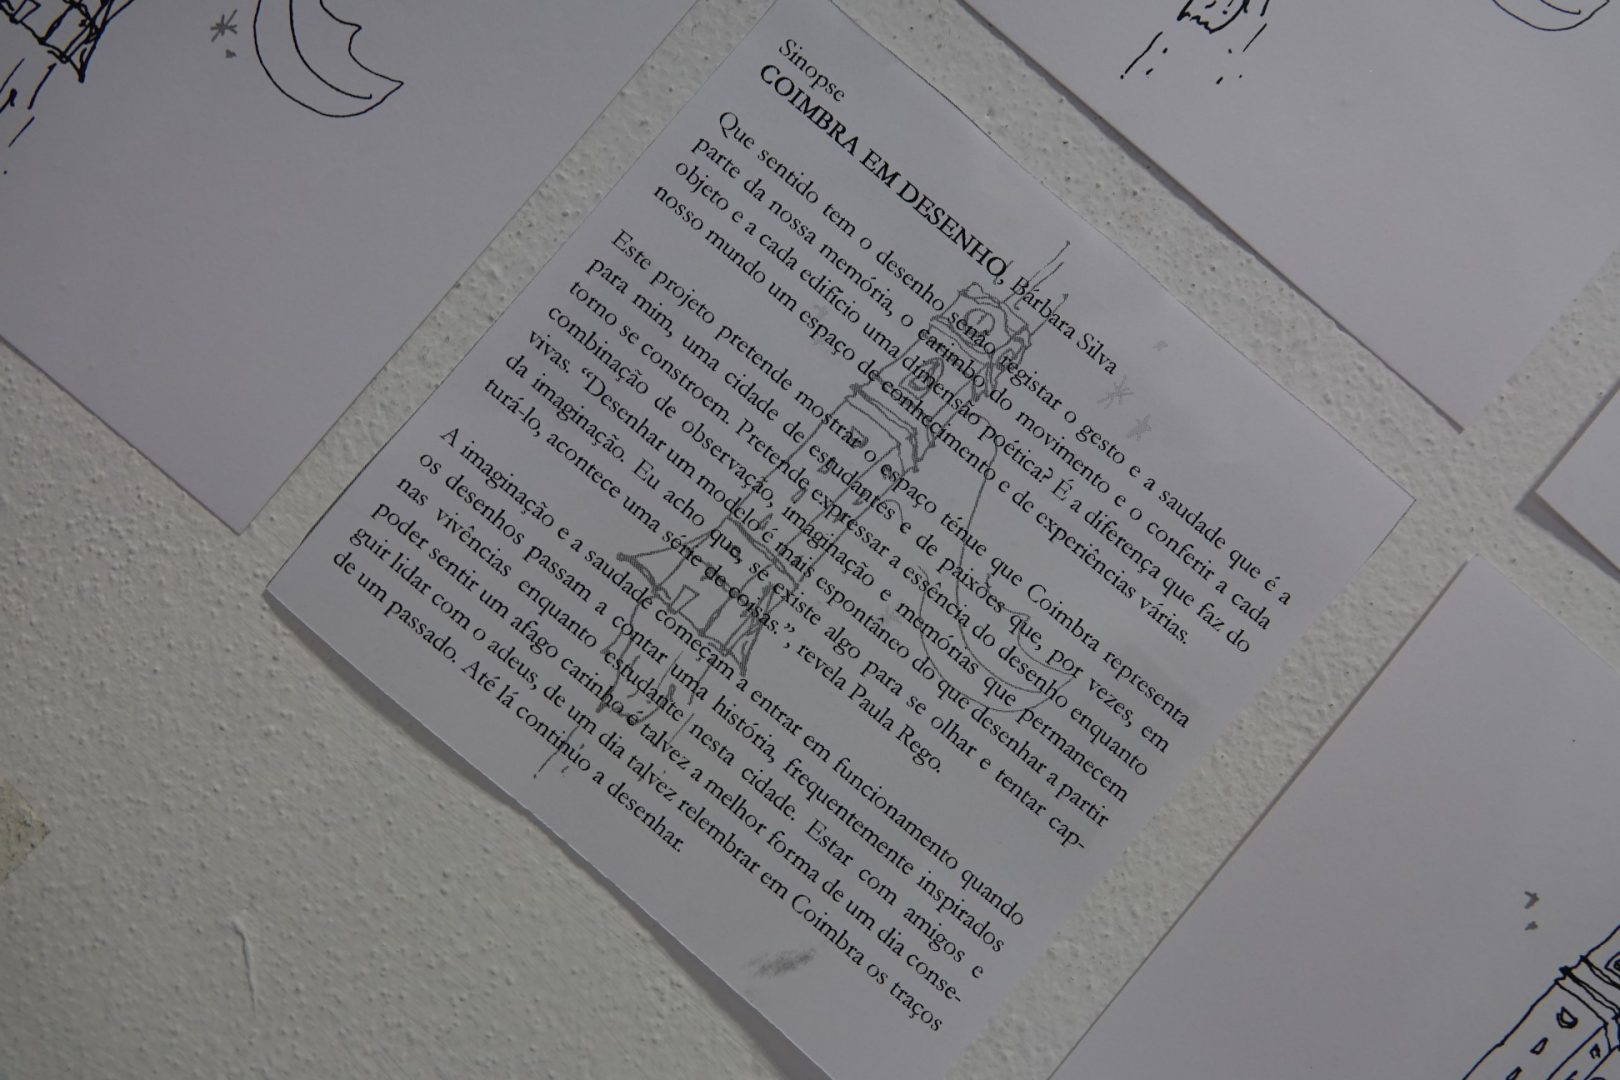 Sinopse
COIMBRA EM DESENHO, Bárbara Silva
Que sentido tem o desenho senão registar o gesto e a saudade que é a
parte da nossa memória, o carimbo do movimento e o conferir a cada
objeto e a cada edifício uma dimensão poética? É a diferença que faz do
nosso mundo um espaço de conhecimento e de experiências várias.
Este projeto pretende mostrar o espaço ténue que Coimbra representa
para mim, uma cidade de estudantes e de paixões que, por vezes, em
torno se constroem. Pretende expressar a essência do desenho enquanto
combinação de observação, imaginação e memórias que permanecem
vivas. “Desenhar um modelo é mais espontâneo do que desenhar a partir
da imaginação. Eu acho que, se existe algo para se olhar e tentar cap-
turá-lo, acontece uma série de coisas.”, revela Paula Rego.
A imaginação e a saudade começam a entrar em funcionamento quando
os desenhos passam a contar uma história, frequentemente inspirados
nas vivências enquanto estudante nesta cidade. Estar com amigos e
poder sentir um afago carinho é talvez a melhor forma de um dia conse-
guir lidar com o adeus, de um dia talvez relembrar em Coimbra os traços
de um passado. Até lá continuo a desenhar.